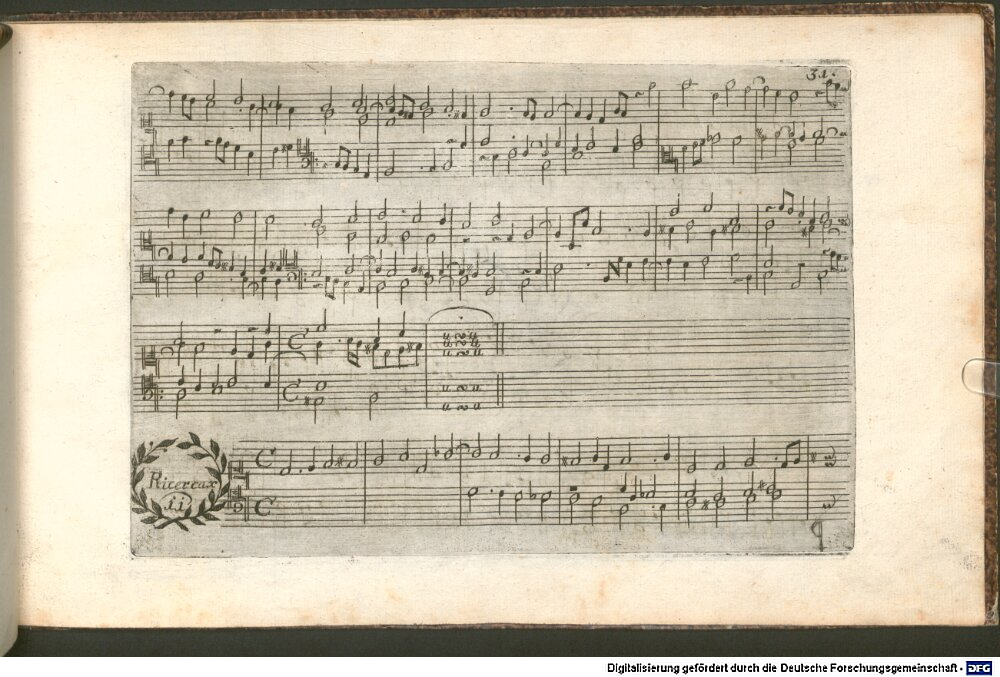 31.
Ricercar
ii
Digitalisierung gefördert durch die Deutsche Forschungsgemeinschaft - DFG